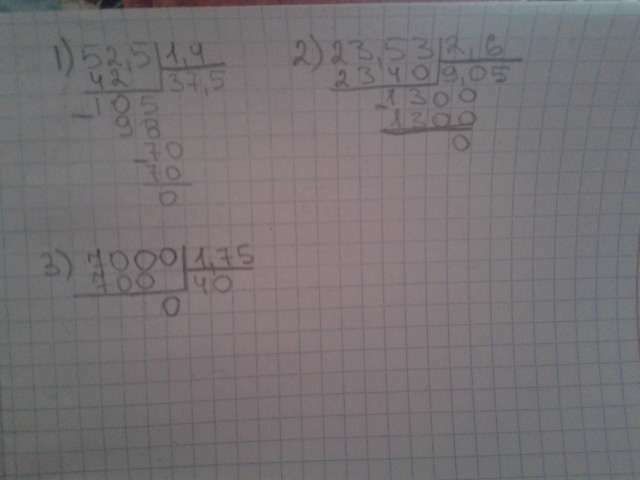 1) 52,5 | 1,4
42 | 37,5
- 105
98
- 70
70
0
2) 23,53 | 2,6
2340 | 9,05
- 1300
1300
0
3) 7000 | 1,75
700 | 40
0